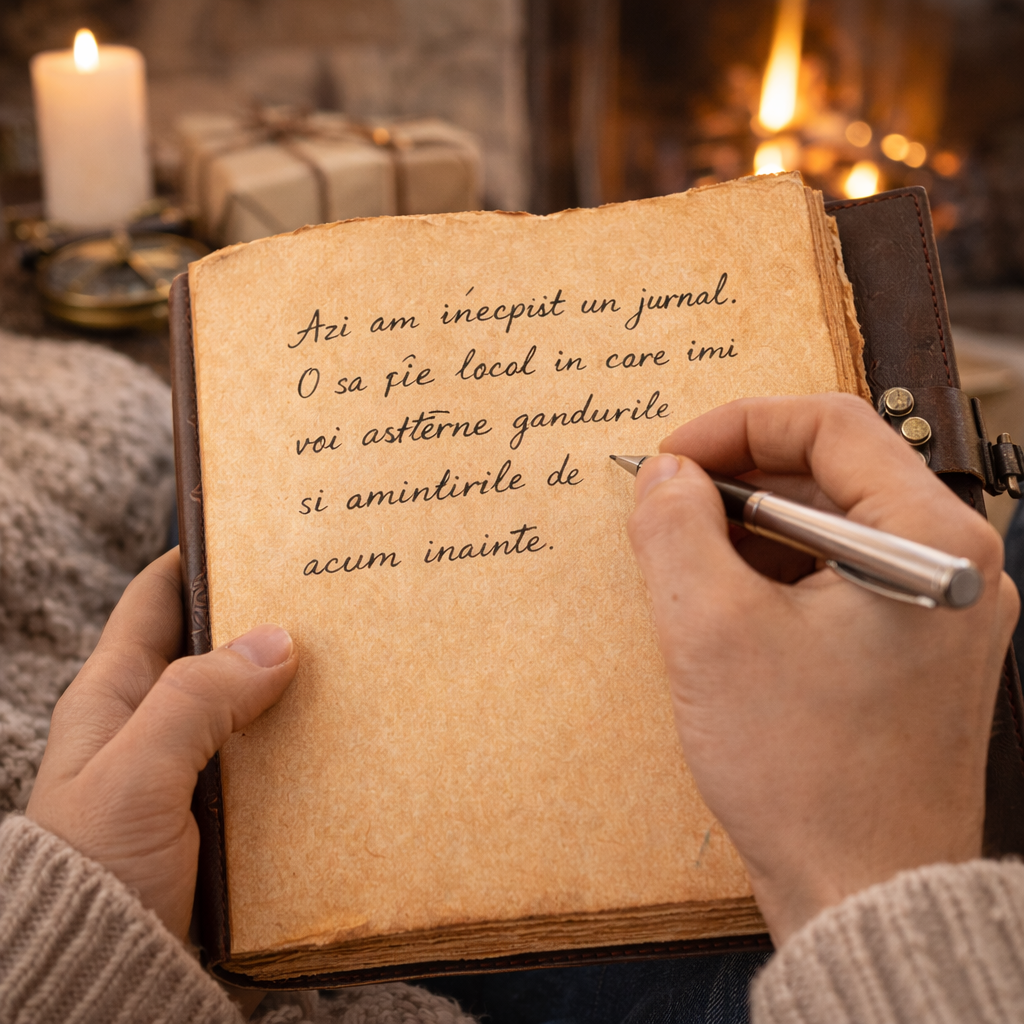 Azi am inecpist un jurnal.
O sa fie locol in care imi
voi asttērne gandurile
si amintirile de
acum inainte.